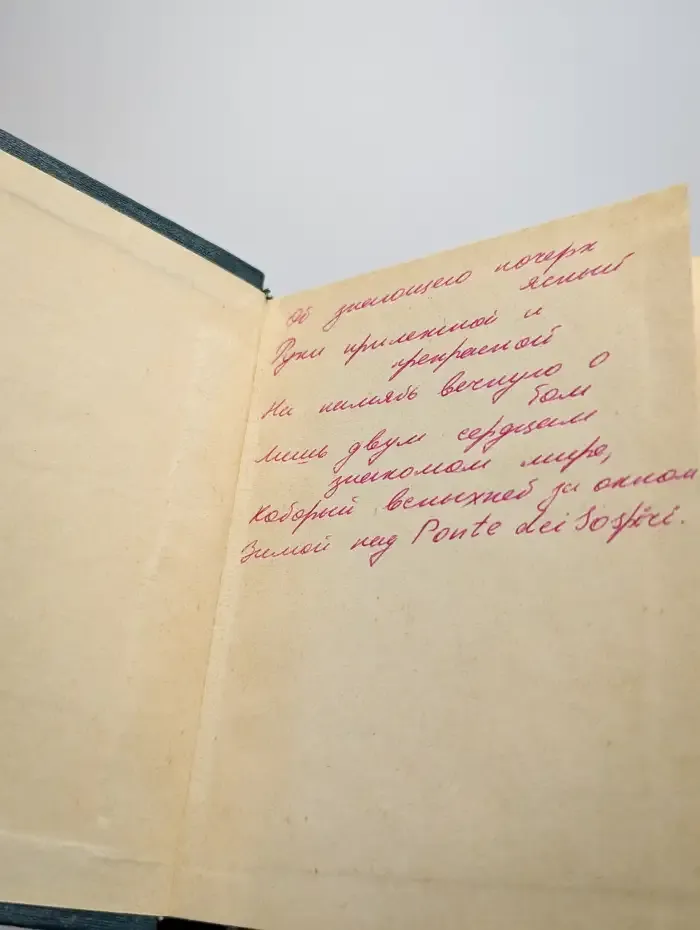 От знающего почерк
ясный
Руки прилежной и
прекрасной
На память вечную о
том
Лишь двум сердцам
знакомом мире,
Который вспыхнет за окном
Зимой над Ponte dei Sospiri.